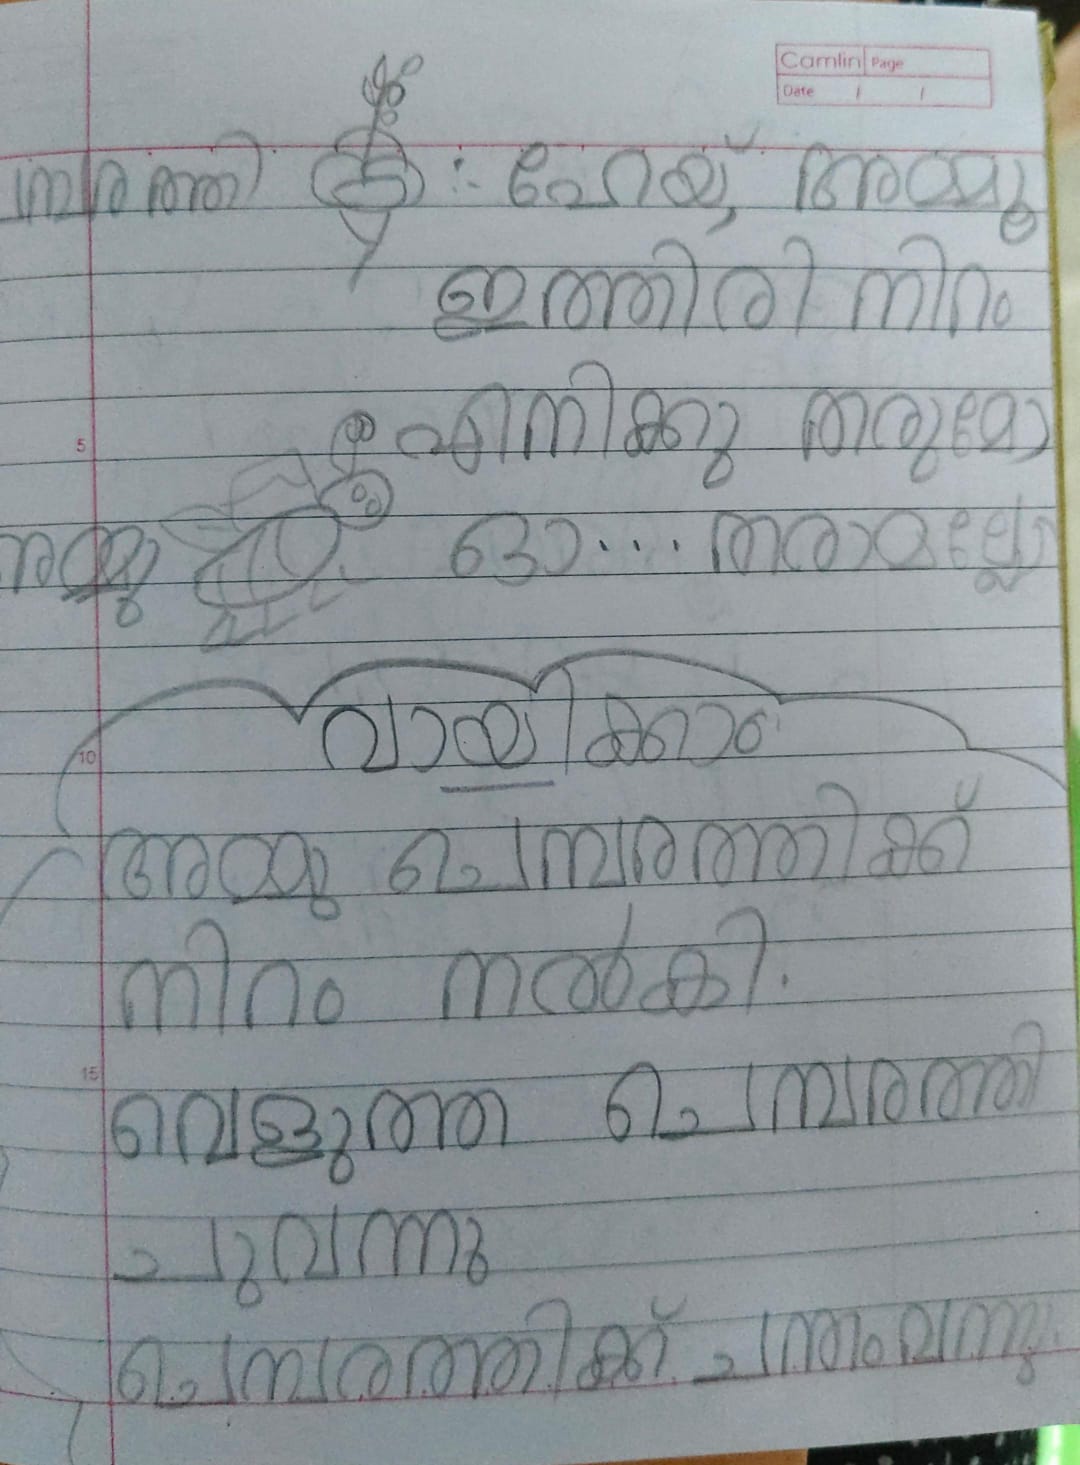 Camlin Page
Date / /
മ്പരത്തി : ഹേയ്, അമ്മു
ഇത്തിരി നിറം
5 എനിക്കു തരുമോ
അമ്മു ഓ... തരാമല്ലോ
10 വായിക്കാം
അമ്മു ചെമ്പരത്തിക്ക്
നിറം നൽകി.
15
വെളുത്ത ചെമ്പരത്തി
ചുവന്നു
ചെമ്പരത്തിക്ക്